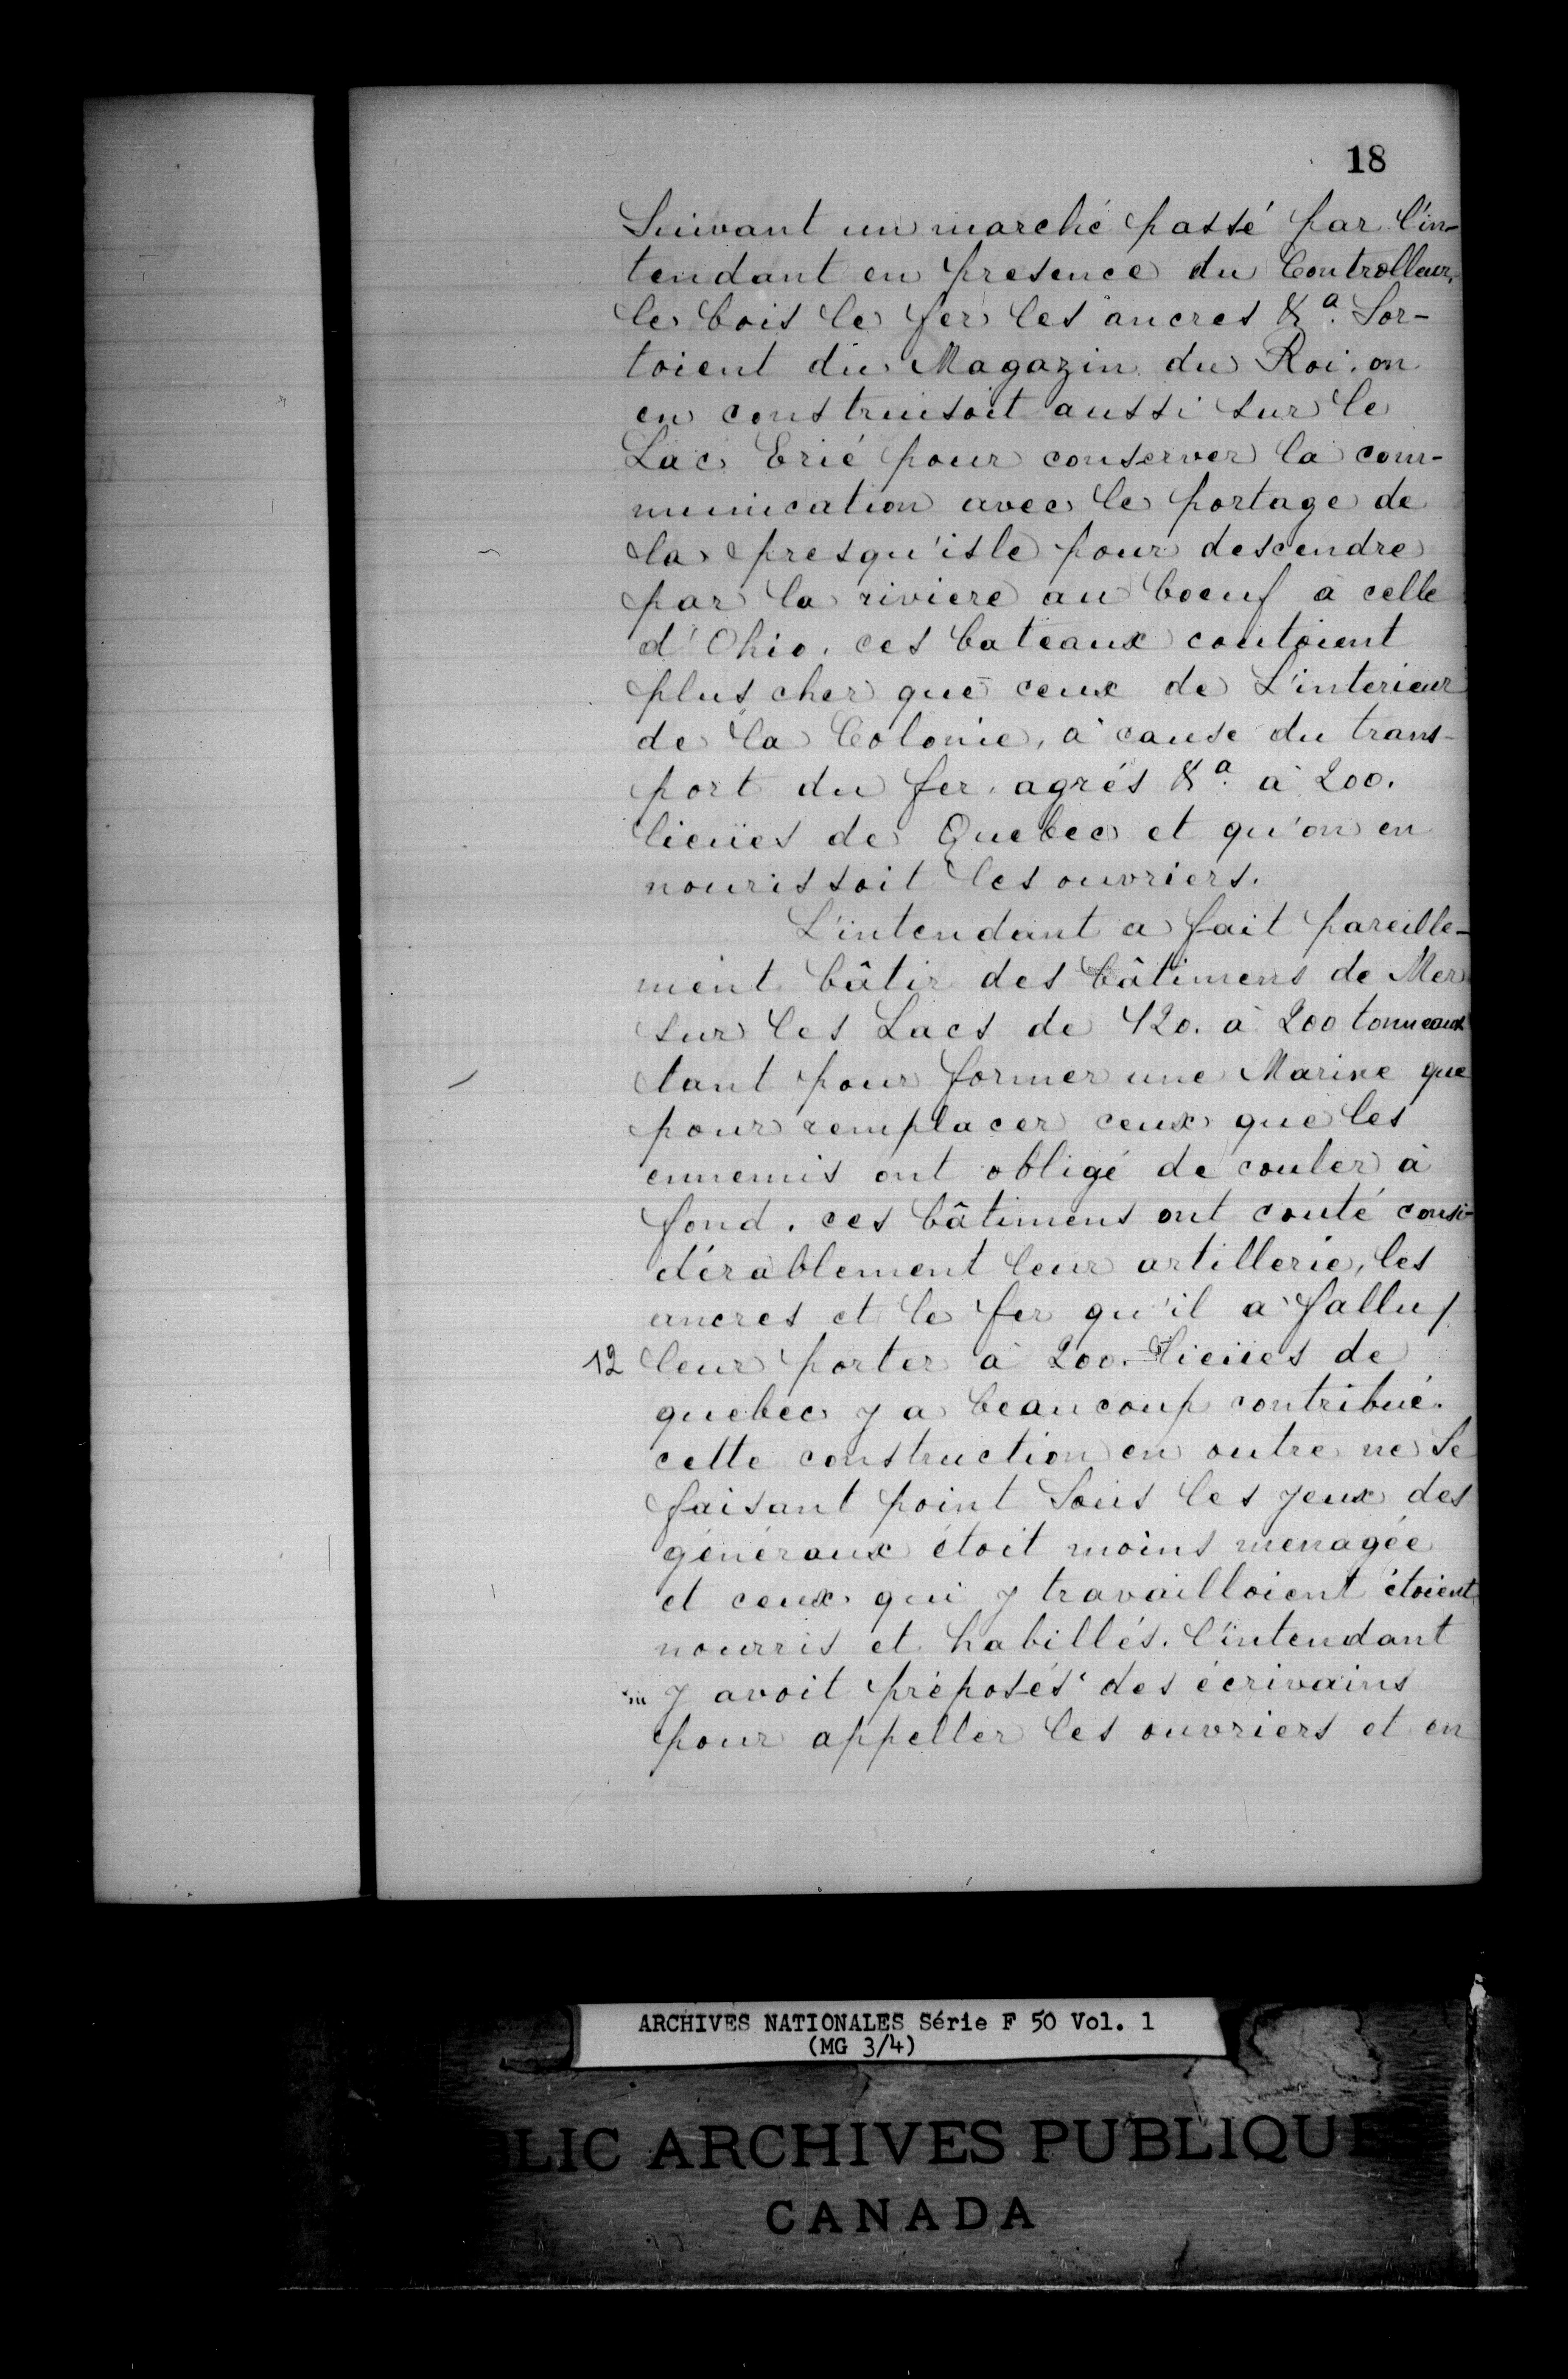 18
Suivant un marché passé par l'in-
tendant en presence du Controlleur,
le bois le fer les ancres &a. Sor-
toient du Magazin du Roi. on
en construisoit aussi sur le
Lac Erié pour conserver la com-
munication avec le portage de
la presqu'isle pour descendre
par la riviere au boeuf à celle
d'Ohio. ces bateaux coutoient
plus cher que ceux de L'interieur
de la Colonie, à cause du trans-
port du fer, agrés &a. à 200.
lieües de Quebec et qu'on en
nourissoit les ouvriers.
L'intendant a fait pareille-
ment bâtir des bâtimens de Mer
sur les Lacs de 120. à 200 tonneaux
tant pour former une Marine que
pour remplacer ceux que les
ennemis ont obligé de couler à
fond. ces bâtimens ont couté consi-
dérablement leur artillerie, les
ancres et le fer qu'il a fallu /
12 leur porter à 200. lieües de
quebec y a beaucoup contribué.
cette construction en outre ne se
faisant point Sous les yeux des
généraux étoit moins menagée
et ceux qui y travailloient étoient
nourris et habillés. l'intendant
y avoit préposés des écrivains
pour appeller les ouvriers et en
ARCHIVES NATIONALES Série F 50 Vol. 1
(MG 3/4)
LIC ARCHIVES PUBLIQUE
CANADA